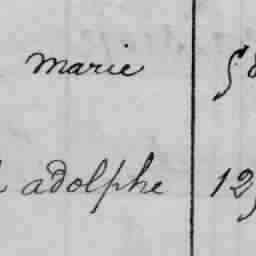 marie
adolphe 12